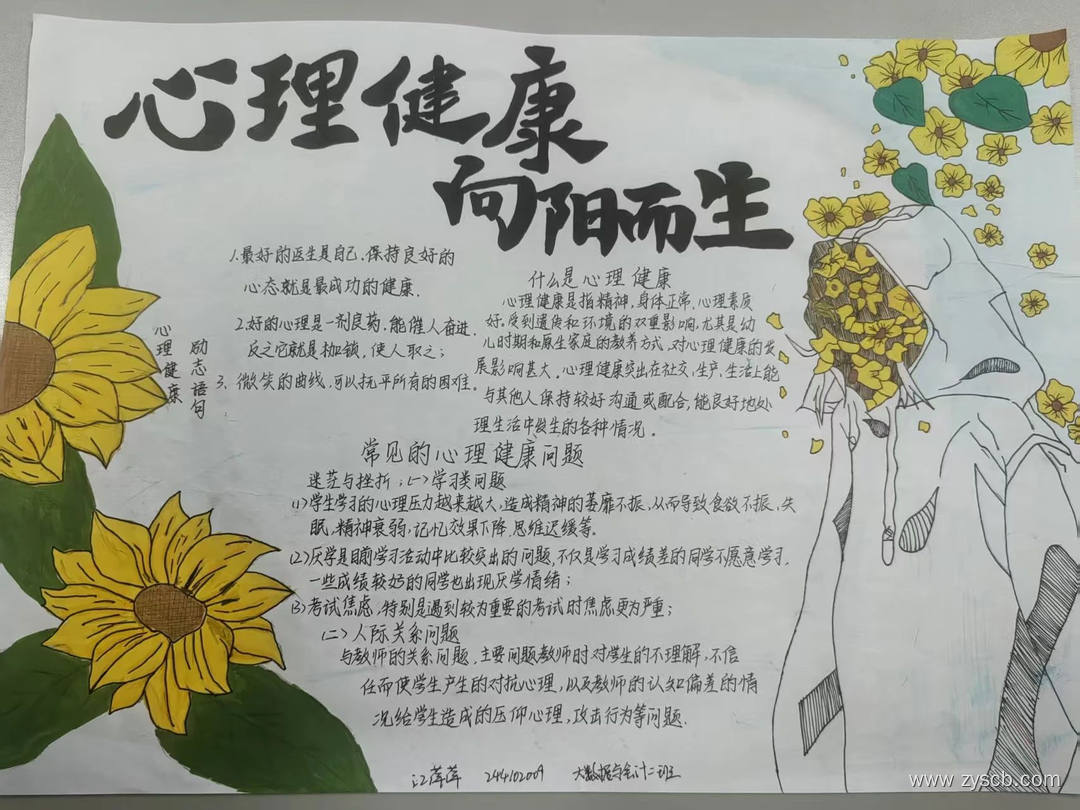 心理健康
向阳而生
1.最好的医生是自己,保持良好的
心态就是最成功的健康.
2.好的心理是一剂良药,能催人奋进.
反之它就是枷锁,使人取之;
3.微笑的曲线,可以抚平所有的困难.
心理健康
励志语句
什么是心理健康
心理健康是指精神,身体正常,心理素质
好.受到遗传和环境的双重影响,尤其是幼
儿时期和原生家庭的教养方式,对心理健康的发
展影响甚大.心理健康突出在社交,生产,生活上能
与其他人保持较好沟通或配合,能良好地处
理生活中发生的各种情况。
常见的心理健康问题
迷茫与挫折;(一)学习类问题
(1)学生学习的心理压力越来越大,造成精神的萎靡不振,从而导致食欲不振,失
眠,精神衰弱,记忆效果下降,思维迟缓等。
(2)厌学是目前学习活动中比较突出的问题,不仅是学习成绩差的同学不愿意学习,
一些成绩较好的同学也出现厌学情绪;
(3)考试焦虑,特别是遇到较为重要的考试时焦虑更为严重;
(二)人际关系问题
与教师的关系问题,主要问题教师时对学生的不理解,不信
任而使学生产生的对抗心理,以及教师的认知偏差的情
况给学生造成的压仰心理,攻击行为等问题.
江萍萍 244102009 大数据与会计二班
www.zyscb.com